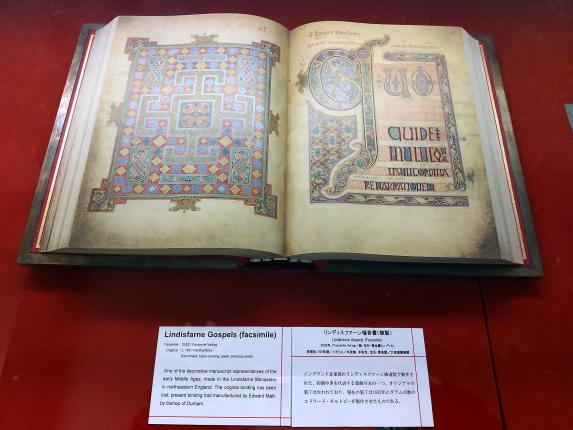 QUIDEM
MULTICO
NATISUNTORDINA
RENARRATIONEM
Lindisfarne Gospels (facsimile)
Facsimile : 2002 / Facsimile Verlag
Original : c. 700 / Northumbria /
Parchment, hand coloring, jewel, precious metal
One of the decorative manuscript representatives of the
early Middle Ages, made in the Lindisfarne Monastery
in northeastern England. The original binding has been
lost, present binding had manufactured by Edward Malt-
by bishop of Durham.
リンディスファーン福音書〈複製〉
Lindisfarne Gospels (Facsimile)
イングランド北東部のリンディスファーン修道院で製作さ
れた、初期中世を代表する装飾写本の一つ。オリジナルの
装丁は失われており、現在の装丁は1853年にダラム司教の
エドワード・モルトビーが製作させたものである。